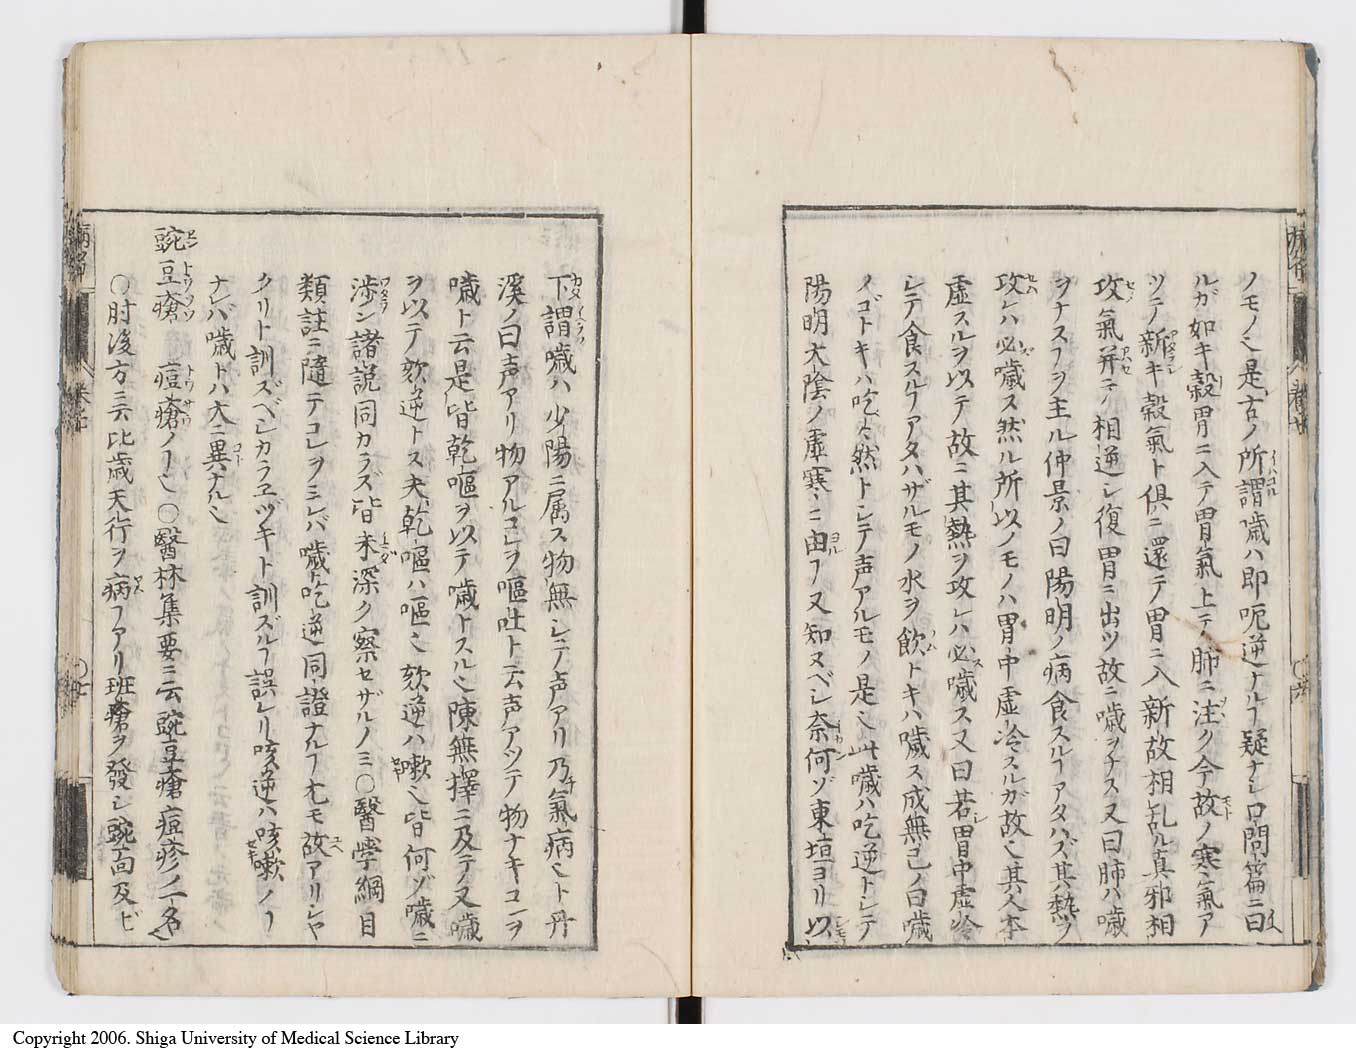 ノモノ也是古ノ所謂噦ハ即呃逆ナルヿ疑ナシ口問篇ニ曰
ルガ如キ穀胃ニ入テ胃氣上テ肺ニ注ク今故ノ寒氣ア
ツテ新キ穀氣ト倶ニ還テ胃ニ入新故相乱ル真邪相
攻氣并テ相逆シ復胃ニ出ツ故ニ噦ヲナス又曰肺ハ噦
ヲナスヿヲ主ル仲景ノ曰陽明ノ病食スルヿアタハズ其熱ヲ
攻レハ必噦ス然ル所以ノモノハ胃中虚冷スルガ故也其人本
虚スルヲ以テ故ニ其熱ヲ攻レハ必噦ス又曰若胃中虚冷
シテ食スルヿアタハザルモノ水ヲ飲トキハ噦ス成無己ノ曰噦
ノゴトキハ吃々然トシテ声アルモノ是也此噦ハ吃逆トシテ
陽明大陰ノ虚寒ニ由フ又知ヌベシ奈何ゾ東垣ヨリ以
下謂噦ハ少陽ニ属ス物無シテ声アリ乃氣病也ト丹
溪ノ曰声アリ物アルコレヲ嘔吐ト云声アツテ物ナキコレヲ
噦ト云是皆乾嘔ヲ以テ噦トスル也陳無擇ニ及テ又噦
ヲ以テ欬逆トス夫乾嘔ハ嘔也欬逆ハ嗽也皆何ゾ噦ニ
渉ン諸説同カラズ皆未深ク察セザルノミ〇醫學綱目
類註ニ隨テコレヲミレバ噦吃逆同證ナルヿ尤モ故アリシヤ
クリト訓ズベシカラヱヅキト訓ズルヿ誤レリ咳逆ハ咳嗽ノヿ
ナレバ噦トハ大ニ異ナル也
豌豆瘡 痘瘡ノヿ也〇醫林集要ニ云豌豆瘡痘疹ノ一名也
〇肘後方ニ云比歳天行ヲ病フアリ班瘡ヲ發シ豌面及ビ
Copyright 2006. Shiga University of Medical Science Library